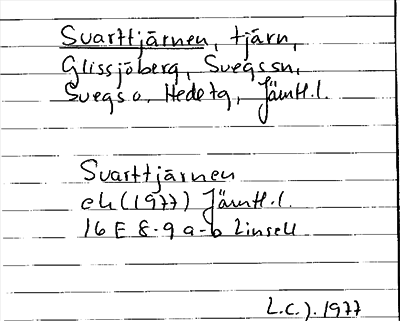 Svarttjärnen, tjärn,
Glissjöberg, Svegssn,
Svegs o. Hede tg, Jämtl.l.
Svarttjärnen
ek (1977) Jämtl.l.
16 E 8-9 a-b Linsell
L.C.J. 1977